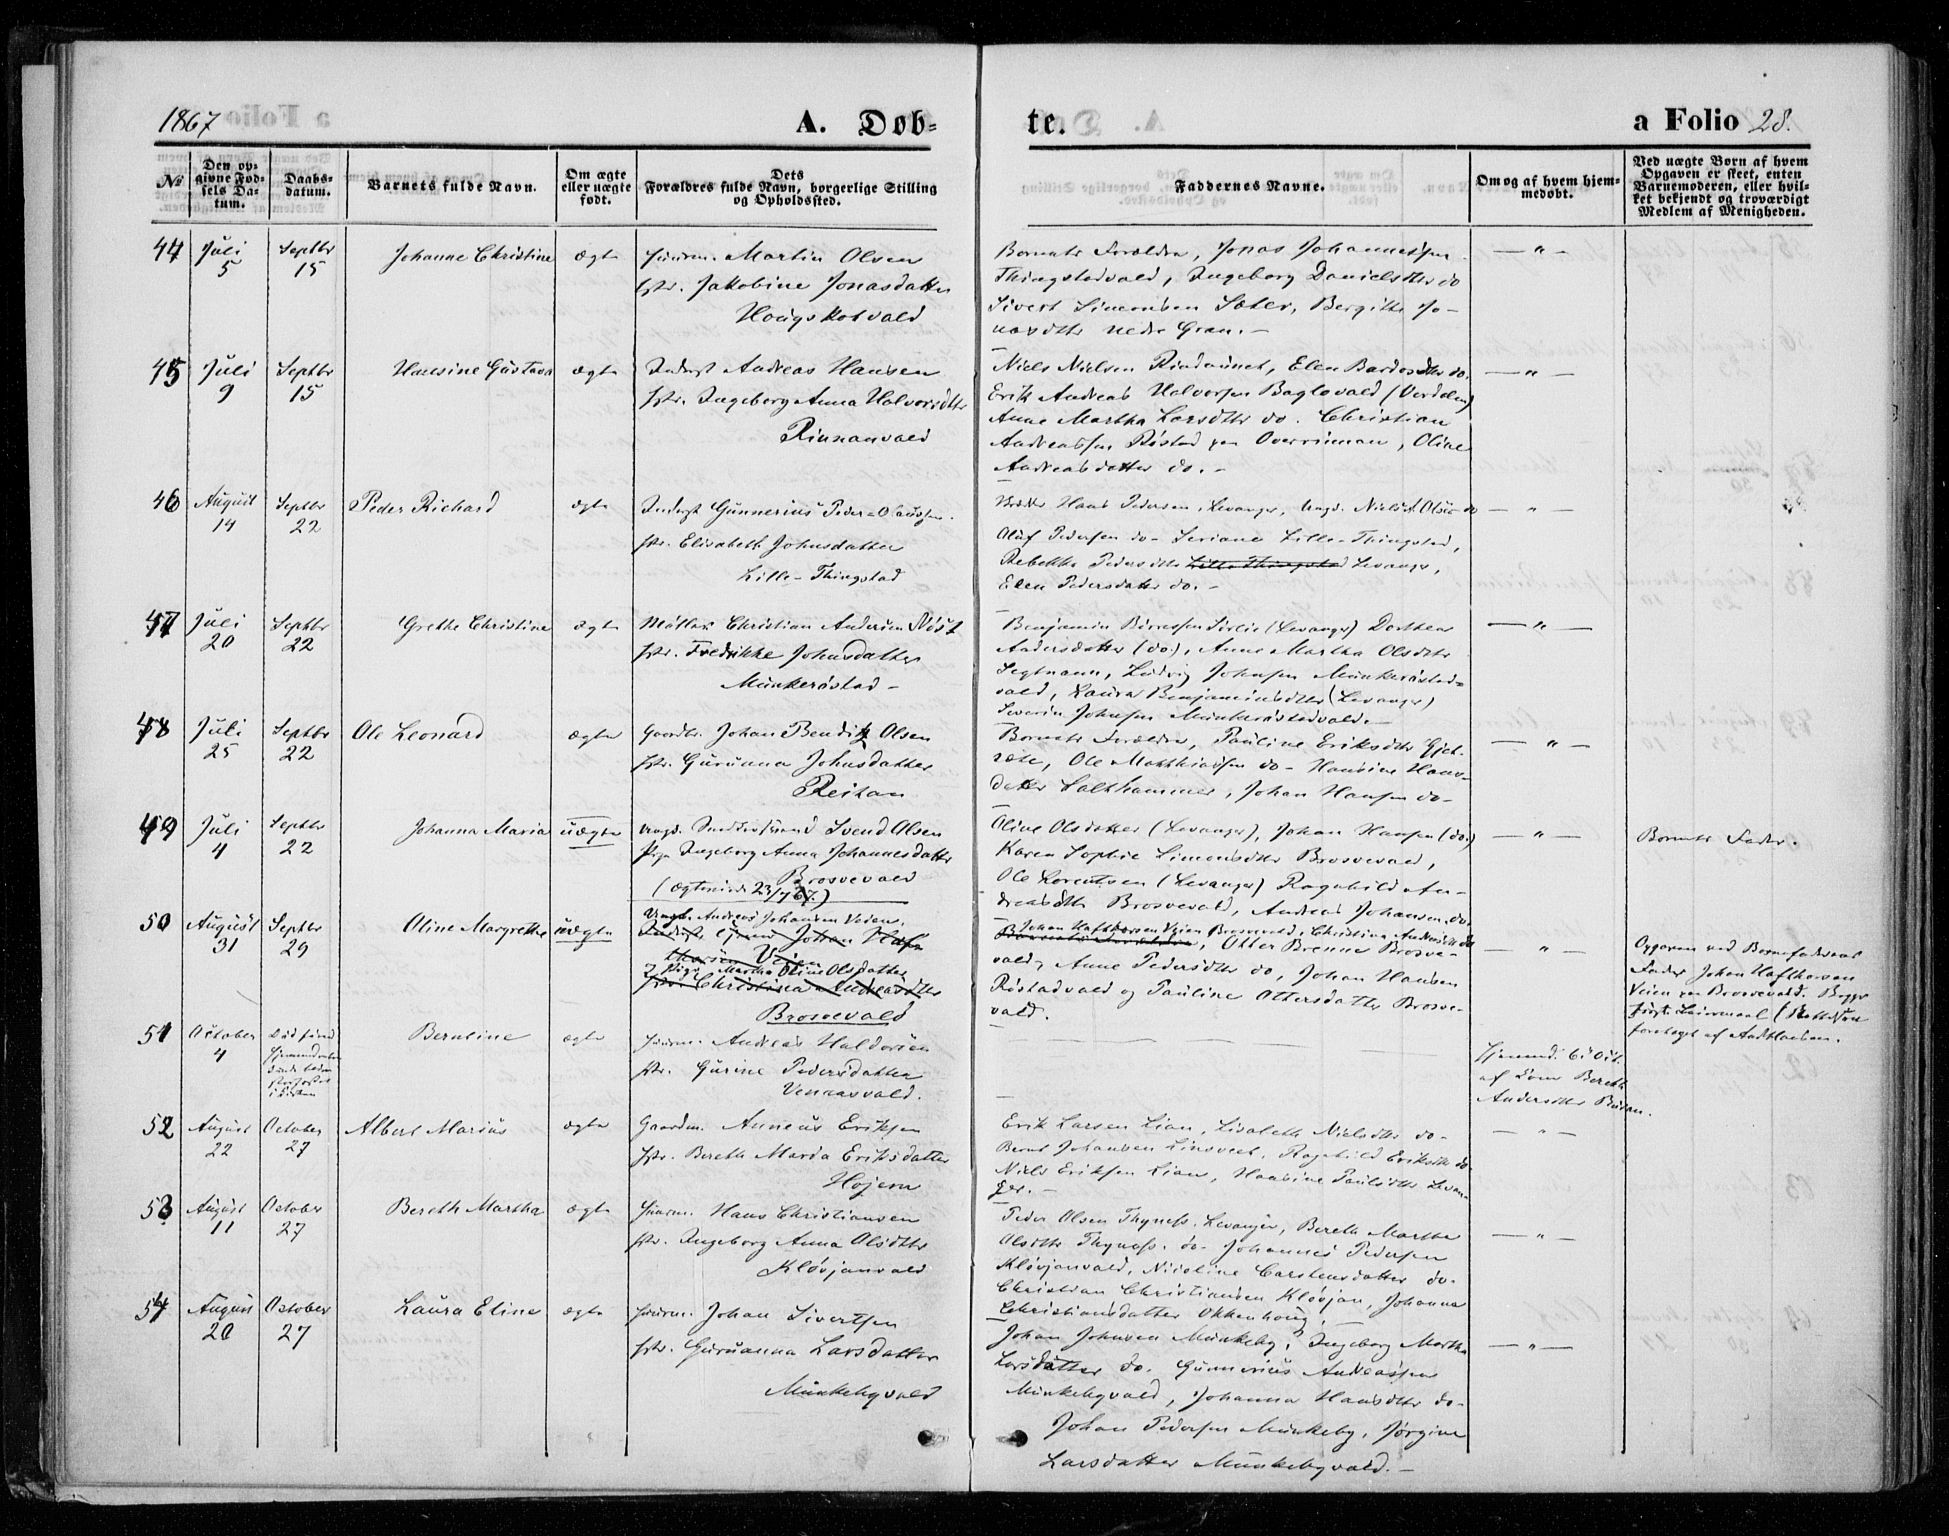 1867
A. Døb-
te.
a Folio 28.
№
Den opgivne Fødsels Datum.
Daabsdatum.
Barnets fulde Navn.
Om ægte eller uægte født.
Dets Forældres fulde Navn, borgerlige Stilling og Opholdssted.
Faddernes Navne.
Om og af hvem hjemmedøbt.
Ved uægte Børn af hvem Opgaven er skeet, enten Barnemoderen, eller hvilket bekjendt og troværdigt Medlem af Menigheden.
44 Juli 5 Septbr 15 Johanne Christine ægte
Huusm. Martin Olsen
Jakobine Jonasdatter
Hougskotvald
Barnets Forældre, Jonas Johannessen
Thingstadvald, Ingeborg Danielsdtr do
Sivert Simonsen Sæter, Bergitte Jo-
nasdtr nedre Gran. -
— " —
45 Juli 9 Septbr 15 Hansine Gustava ægte
Inderst Andreas Hansen
Ingeborg Anna Halvorsdtr
Rinnanvald
Niels Nielsen Rindsunet, Elen Bardosdtr do.
Erik Andreas Halvorsen Baglovald (Verdalen)
Anne Martha Larsdtr do. Christian
Andreassen Røstad paa Overrinnan, Oline
Andreasdatter do. -
— " —
46 August 14 Septbr 22 Peder Richard ægte
Inderst Gunnerius Peder-Olaussen.
Elisabeth Johnsdatter
Lille-Thingstad
Hans Pedersen, Levanger, Ungk. Niels Olsen do
Oluf Pedersen do - Seriane Lille-Thingstad,
Rebekka Pedersdtr Lille Thingstad Levanger,
Elen Pedersdatter do. -
— " —
47 Juli 20 Septbr 22 Grethe Christine ægte
Møller Christian Andersen Røst
Fredrikke Johnsdatter
Munkerøstad -
Benjamin Børresen Sirlie (Levanger) Dorthea
Andersdatter (do), Anne Martha Olsdtr
Segtnann, Ludvig Johnsen Munkerøstad-
vald, Laura Benjaminsdtr (Levanger)
Severin Johnsen Munkerøstadvald. -
— " —
48 Juli 25 Septbr 22 Ole Leonard ægte
Gaardbr. Johan Bendik Olsen
Gurunna Johnsdatter
Reitan
Barnets Forældre, Pauline Eriksdtr Gjet-
, Ole Matthiassen do - Hansine Hans-
datter Salthammer, Johan Hansen do -
— " —
49 Juli 4 Septbr 22 Johanna Maria uægte
Ungk. Svend Olsen
Pige Ingeborg Anna Johannesdatter
Brosvevald
(ægteviede 23/7 67.)
Oline Olsdatter (Levanger), Johan Hansen (do.)
Karen Sophie Simonsdtr Brosvevald,
Ole Lorentsen (Levanger) Ragnhild An-
dreasdtr Brosvevald, Andreas Johansen do.
— " —
Barnets Fader.
50 August 31 Septbr 29 Oline Margrethe uægte
Ungk. Andreas Johansen Veien.
Johan Haf-
thorsen Veien
Pige Martha Oline Olsdatter
Christina Andreasdtr
Brosvevald
Johan Hafthorsen Veien Brosvevald, Christina Andreasdtr do
Barnets Forældre, Otter Brenne Brosve-
vald, Anne Pedersdtr do, Johan Hansen
Røstadvald og Pauline Ottersdatter Brosve-
vald.
— " —
Opgaven ved Barnefaderens
Fader Johan Hafthorsen
Veien paa Brosvevald. Begges
første Leiermaal
foretaget af
51 October 4 Dødsfærd
Berntine ægte
Huusm. Andreas Haldorsen
Gurine Pedersdatter
Vennasvald.
Hjemmd. 6' Oct.
af Bereth
Andersdtr Reitan.
52 August 22 October 27 Albert Marius ægte
Gaardm. Anneus Eriksen
Bereth Marda Eriksdatter
Hojem
Erik Larsen Lian, Lisabeth Nielsdtr do -
Bernt Johansen Linsvedt, Ragnhild Eriksdtr do
Niels Eriksen Lian, Hansine Paulsdtr Levan-
ger. -
— " —
53 August 11 October 27 Bereth Martha ægte
Huusm. Hans Christiansen
Ingeborg Anna Olsdtr
Kløvjanvald
Peder Olsen Thyness, Levanger, Bereth Martha
Olsdtr Thyness. do - Johannes Pedersen
Kløvjanvald, Nicoline Carstensdatter do -
Christian Christiansen Kløvjan, Johanna
Christiansdatter Okkenhoug,
— " —
54 August 20 October 27 Laura Eline ægte
Huusm. Johan Sivertsen
Guruanna Larsdatter
Munkebyvald
Johan Johnsen Munkeby, Ingeborg Martha
Larsdatter do. Gunnerius Andreassen
Munkebyvald, Johanna Hansdtr do -
Johan Pedersen Munkeby, Jørgine
Larsdatter Munkebyvald. -
— " —